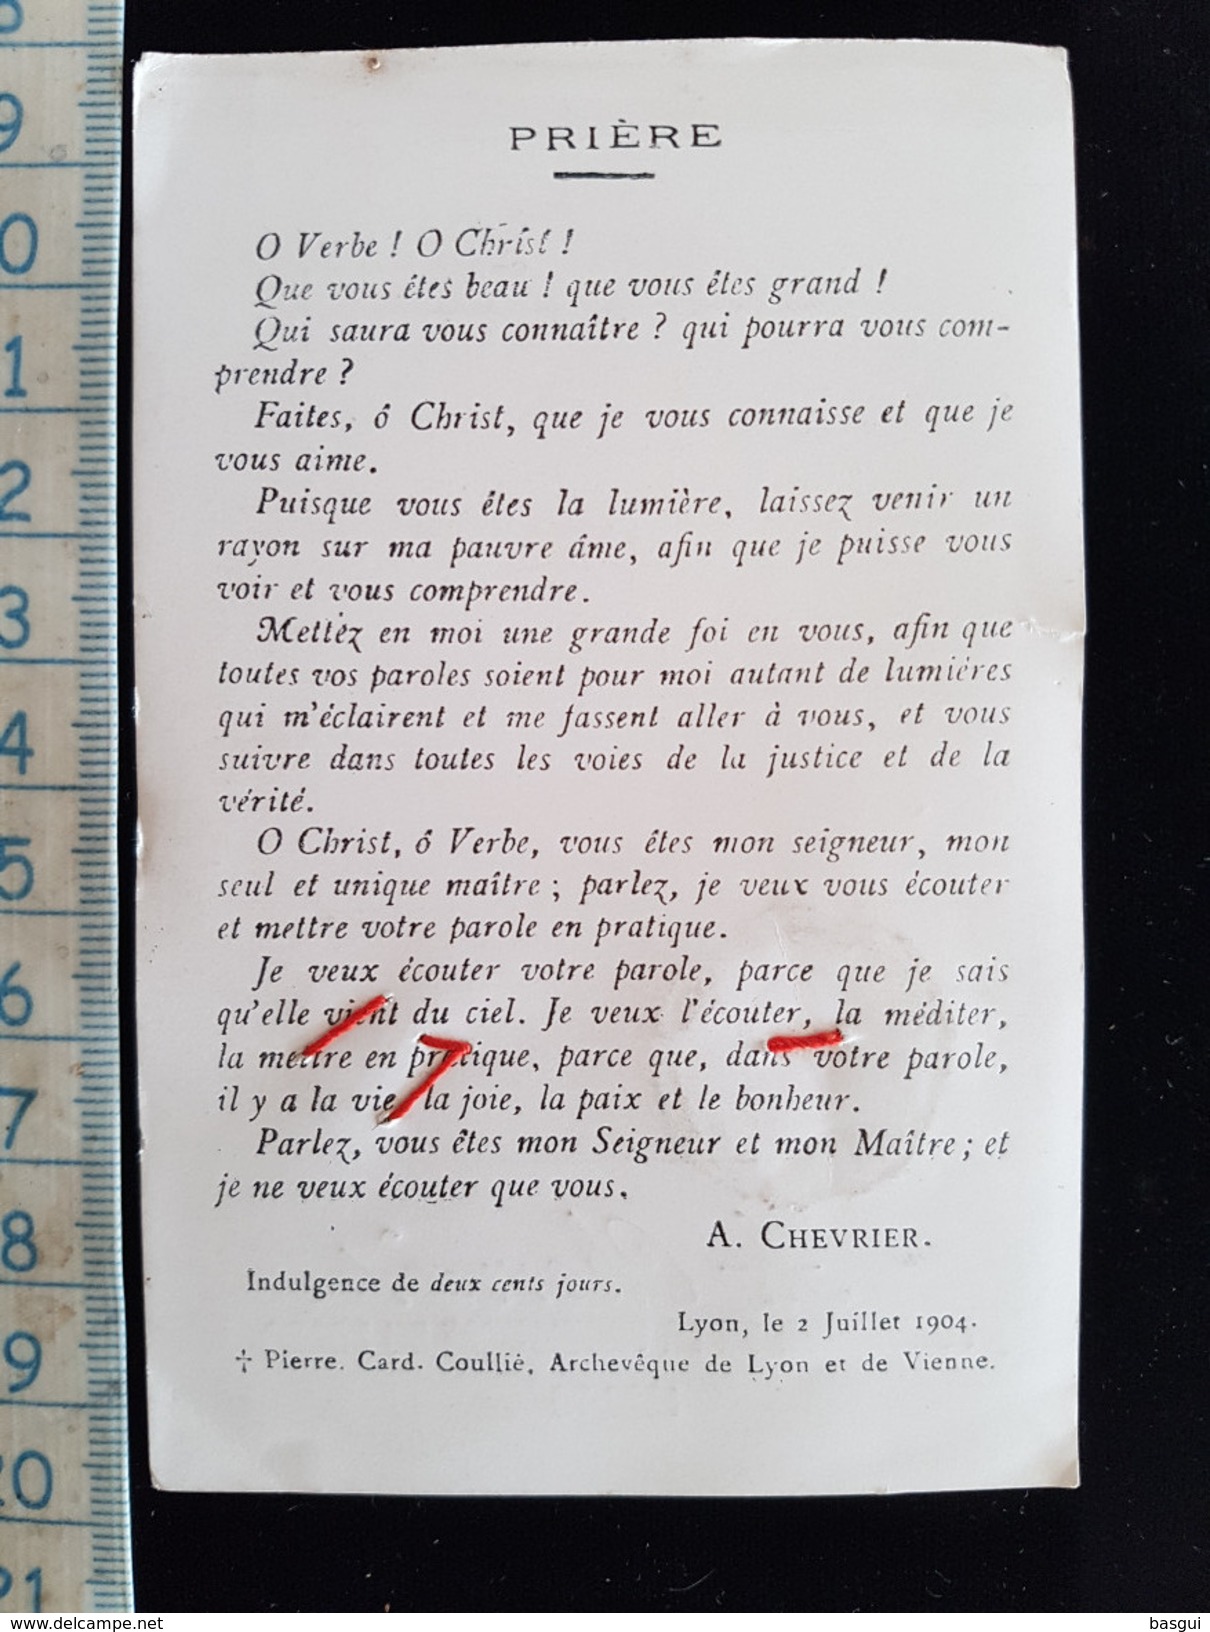 PRIÈRE
O Verbe ! O Christ !
Que vous êtes beau ! que vous êtes grand !
Qui saura vous connaître ? qui pourra vous com-
prendre ?
Faites, ô Christ, que je vous connaisse et que je
vous aime.
Puisque vous êtes la lumière, laissez venir un
rayon sur ma pauvre âme, afin que je puisse vous
voir et vous comprendre.
Mettez en moi une grande foi en vous, afin que
toutes vos paroles soient pour moi autant de lumières
qui m'éclairent et me fassent aller à vous, et vous
suivre dans toutes les voies de la justice et de la
vérité.
O Christ, ô Verbe, vous êtes mon seigneur, mon
seul et unique maître ; parlez, je veux vous écouter
et mettre votre parole en pratique.
Je veux écouter votre parole, parce que je sais
qu'elle vient du ciel. Je veux l'écouter, la méditer,
la mettre en pratique, parce que, dans votre parole,
il y a la vie, la joie, la paix et le bonheur.
Parlez, vous êtes mon Seigneur et mon Maître ; et
je ne veux écouter que vous.
A. CHEVRIER.
Indulgence de deux cents jours.
Lyon, le 2 Juillet 1904.
† Pierre. Card. Coullié, Archevêque de Lyon et de Vienne.
8
9
0
1
2
3
4
5
6
7
8
9
20
21
delcampe.net
basgui